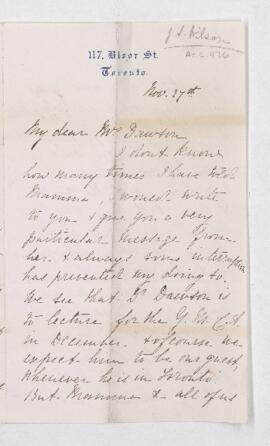 J. S. Wilson
Acc. 976
117, Bloor St.
Toronto.
Nov. 27th
My dear Mrs Dawson
I dont know
how many times I have told
Mamma, I would write
to you & give you a very
particular message from
her & always some interruption
has prevented my doing so.
We see that Dr Dawson is
to lecture for the Y. M. C. A
in December. & of course we
expect him to be our guest,
whenever he is in Toronto.
But Mamma & all of us